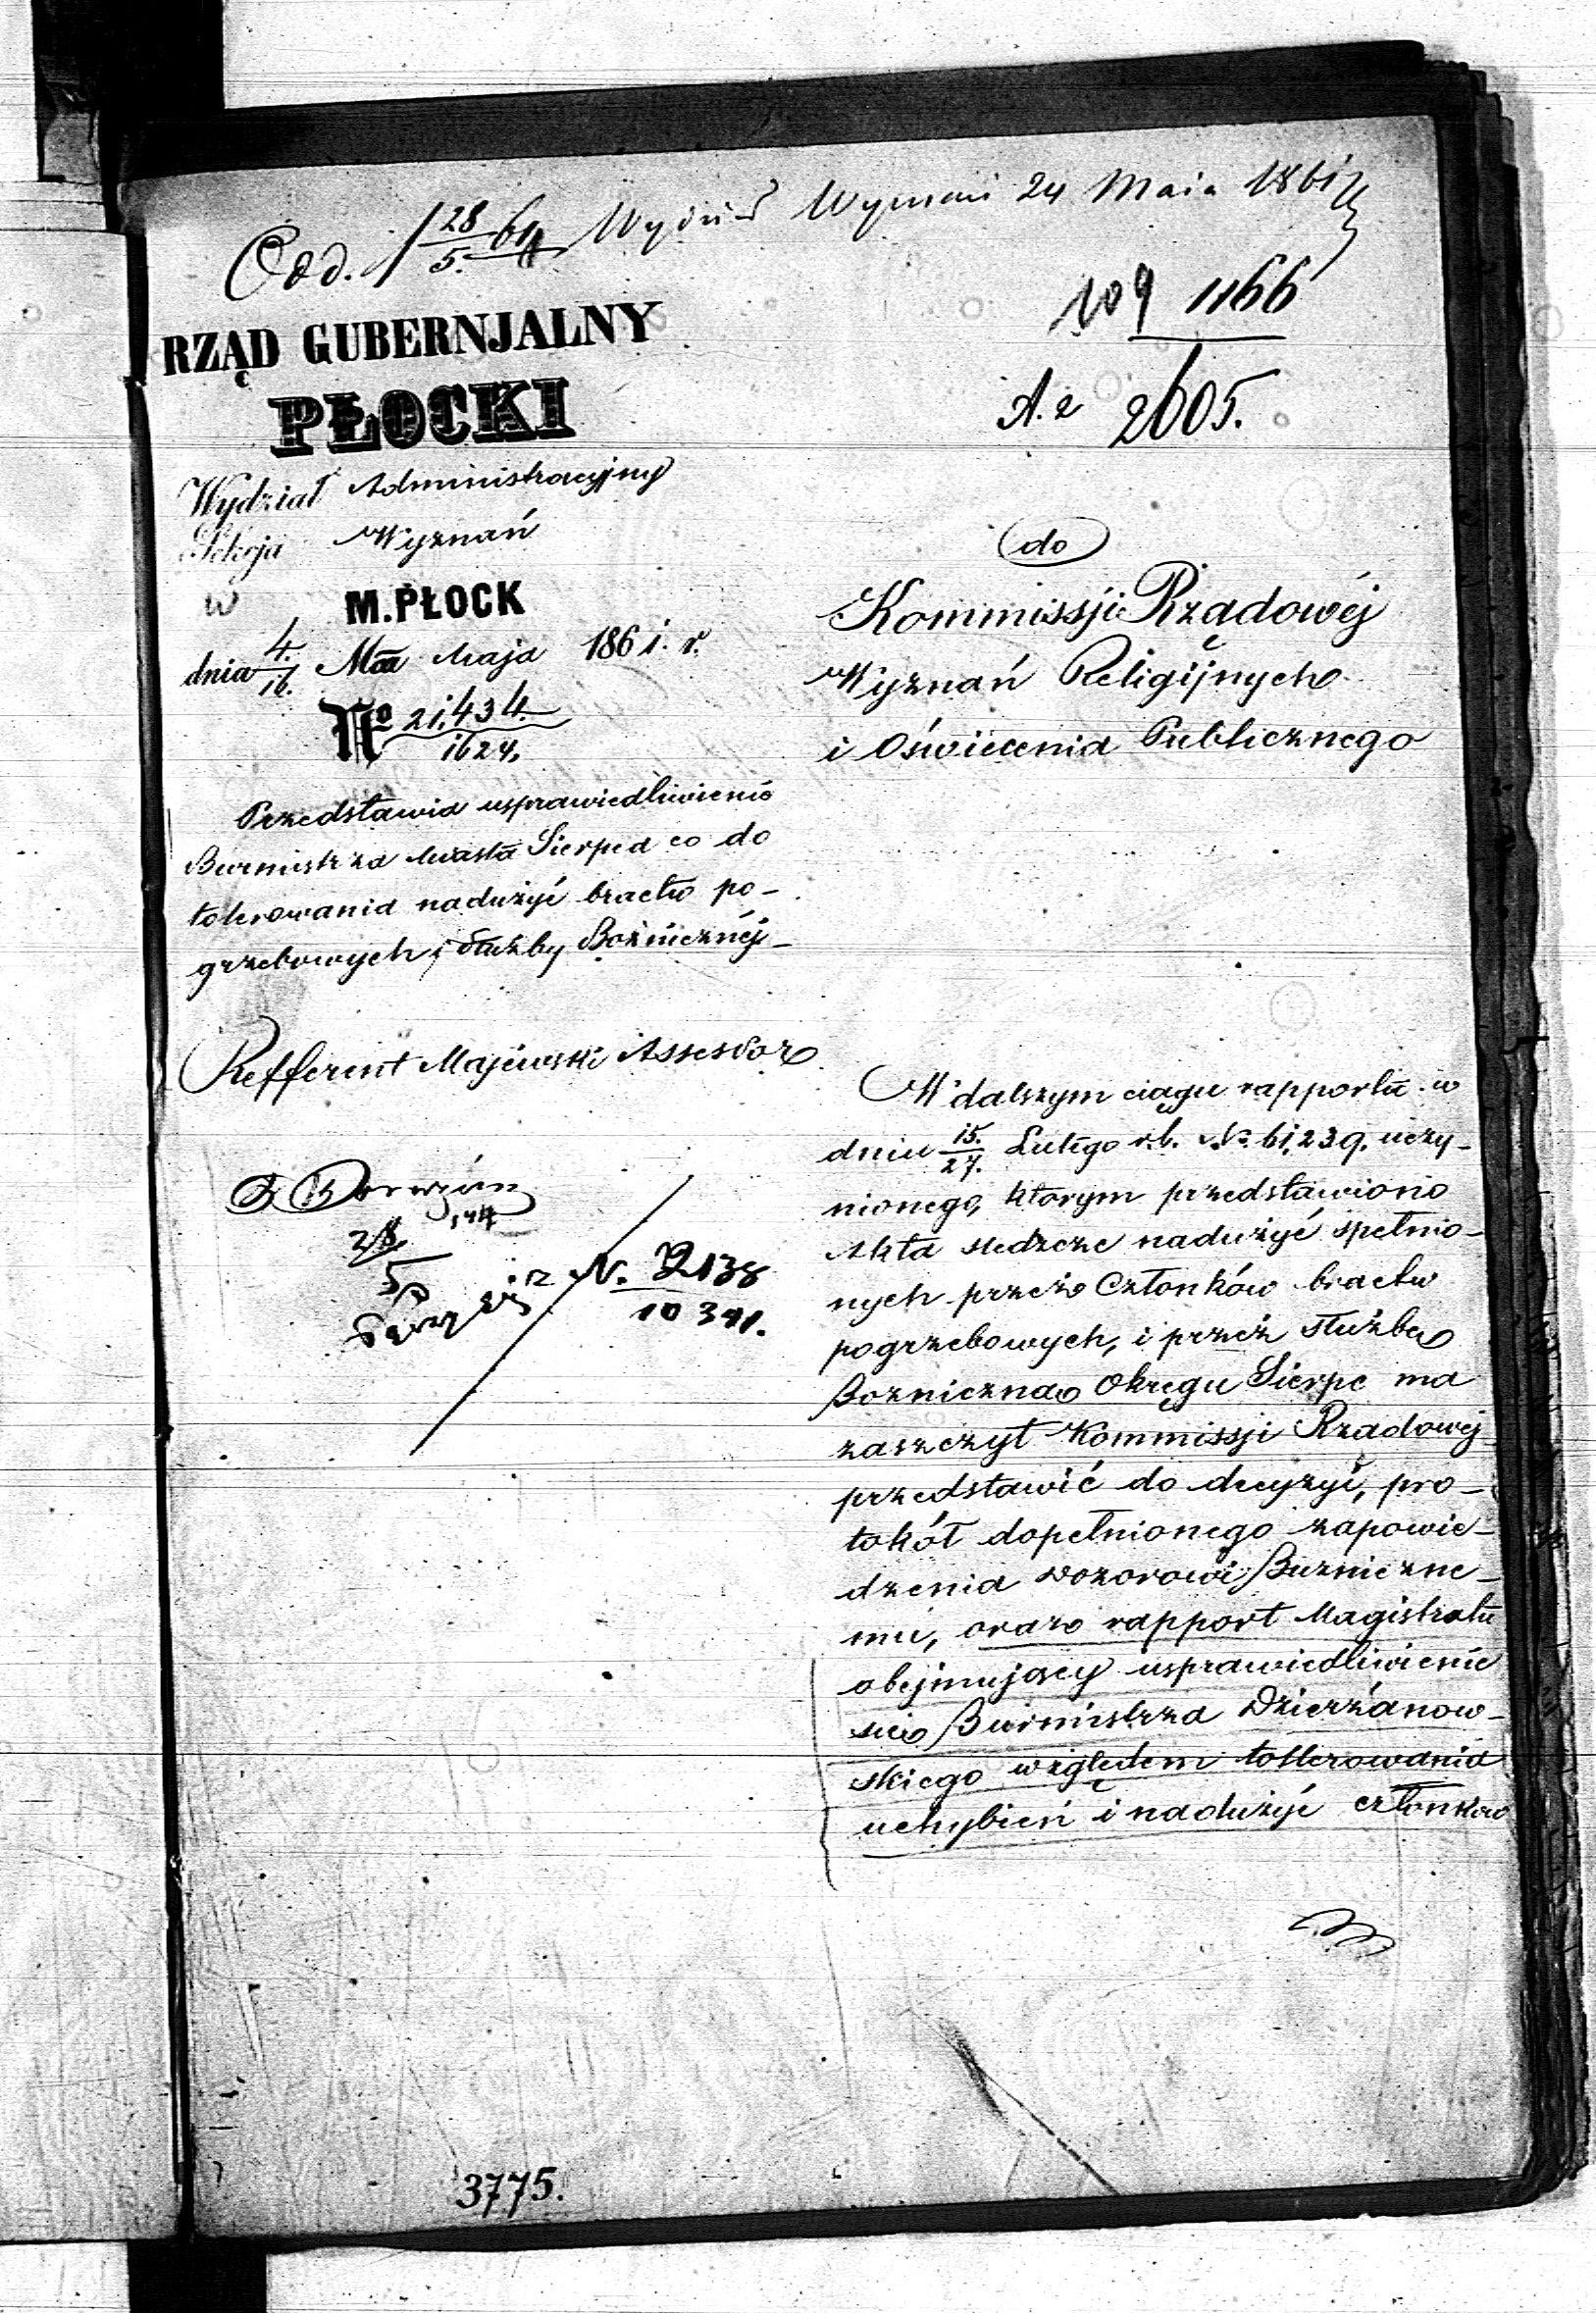 Odd. 28/5. 61 Wydział Wyznań 24 Maia 1861
109 1166
A. 2 2605.
RZĄD GUBERNJALNY
PŁOCKI
Wydział Administracyjny
Sekcja Wyznań
w M. PŁOCK
dnia 4./16. Maja 1861. r.
No 21,434./1624.
Przedstawia usprawiedliwienie
Burmistrza Miasta Sierpca co do
tolerowania nadużyć bractw po-
grzebowych i służby Bożnicznéj-
Refferent Majewski Assessor
28/5
N. 2138
10 341.
do
Kommissji Rządowéj
Wyznań Religijnych
i Oświecenia Publicznego
W dalszym ciągu rapportu w
dniu 15./27. Lutego r.b. No. 61,239. uczy-
nionego, którym przedstawiono
Akta śledcze nadużyć spełnio-
nych przez Członków bractw
pogrzebowych, i przez służbę
Bożniczną Okręgu Sierpc ma
zaszczyt Kommissji Rządowéj
przedstawić do decyzyi, pro-
tokół dopełnionego zapowie-
dzenia Dozorowi Bużniczne-
mu, oraz rapport Magistratu
obejmujący usprawiedliwienie
się Burmistrza Dzierżanow-
skiego względem tollerowania
uchybień i nadużyć członków
3775.